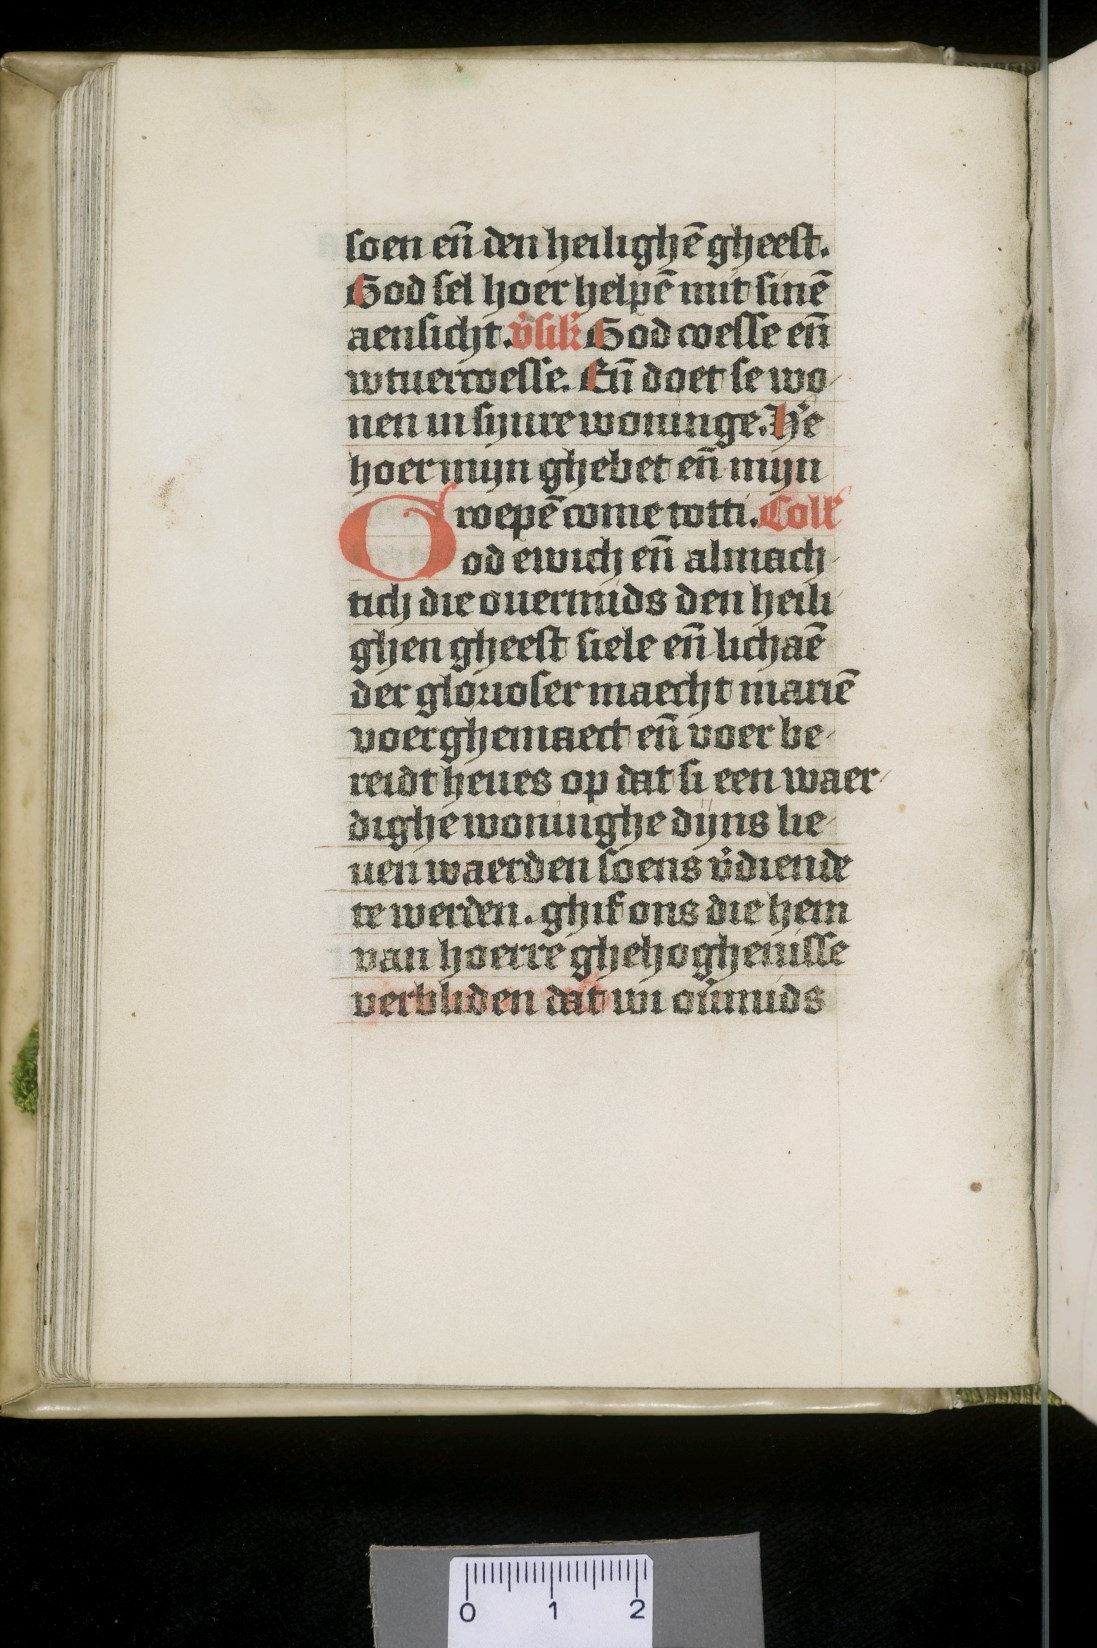 soen en̄ den heilighē gheest.
God sel hoer helpē mit sinē
aensicht. v̓sik̓ God coesse en̄
wtuercoesse. En̄ doet se wo
nen in sijnre woninge. H̓e
hoer mijn ghebet en̄ mijn
roepē come totti. Coll̓
God ewich en̄ almach
tich die ouermids den heili
ghen gheest siele en̄ lichaē
der glorioser maecht mariē
voerghemaect en̄ voer be
reidt heues op dat si een waer
dighe woninghe dijns lie
uen waerden soens v̓diende
te werden. ghif ons die hem
van hoerre ghehoghenisse
verbliden dat wi ou̓mids
0 1 2